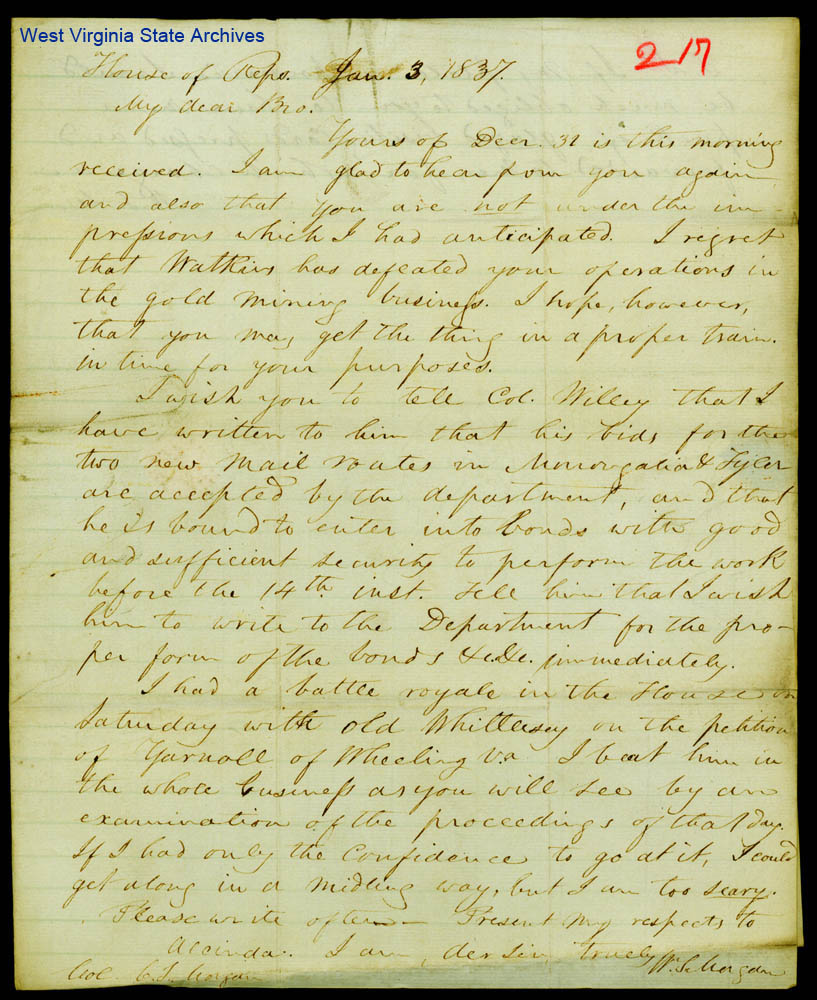 West Virginia State Archives
217
House of Reps. Jan. 3, 1837.
My dear Bro.
Yours of Decr. 31 is this morning
received. I am glad to hear from you again
and also that you are not under the im-
pressions which I had anticipated. I regret
that Watkins has defeated your operations in
the gold mining business. I hope, however,
that you may get the thing in a proper train.
in time for your purposes.
I wish you to tell Col. Willey that I
have written to him that his bids for the
two new mail routes in Monongalia & Tyler
are accepted by the department, and that
he is bound to enter into bonds with good
and sufficient security to perform the work
before the 14th inst. Tell him that I wish
him to write to the Department for the pro-
per form of the bonds &c&c. immediately.
I had a battle royale in the House on
Saturday with old Whittlesey on the petition
of Yarnall of Wheeling Va. I beat him in
the whole business as you will see by an
examination of the proceedings of that day.
If I had only the confidence to go at it, I could
get along in a midling way, but I am too scary.
Please write often — Present my respects to
Accinda. I am, der Sir, truely
Wm. S. Morgan
Col. C. S. Morgan